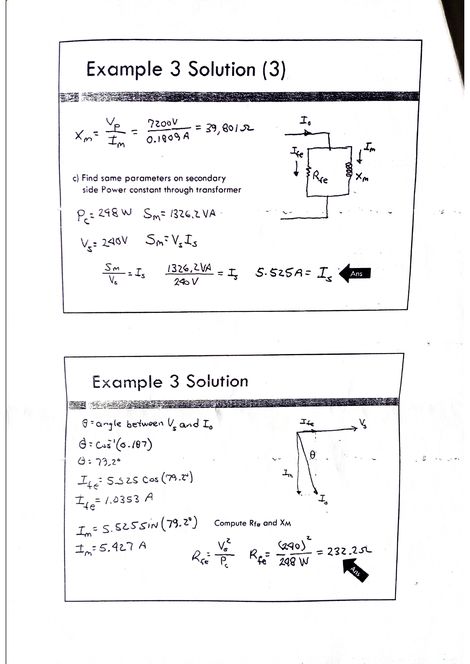 Example 3 Solution (3)
Xm = Vp/Im = 7200V/0.1809A = 39,801Ω
Io
Ife
Im
Rfe
Xm
c) Find same parameters on secondary
side Power constant through transformer
Pc = 248 W Sm = 1326.2 VA
Vs = 240V Sm = Vs Is
Sm/Vs = Is 1326.2VA/240V = Is 5.525A = Is Ans
Example 3 Solution
θ = angle between Vs and Io
θ = Cos⁻¹(0.187)
θ = 79.2°
Ife = 5.525 Cos(79.2°)
Ife = 1.0353 A
Im = 5.525 Sin(79.2°)
Im = 5.427 A
Ife
Vs
θ
Im
Io
Compute Rfe and XM
Rfe = Vs²/Pc Rfe = (240)²/248 W = 232.2Ω
Ans